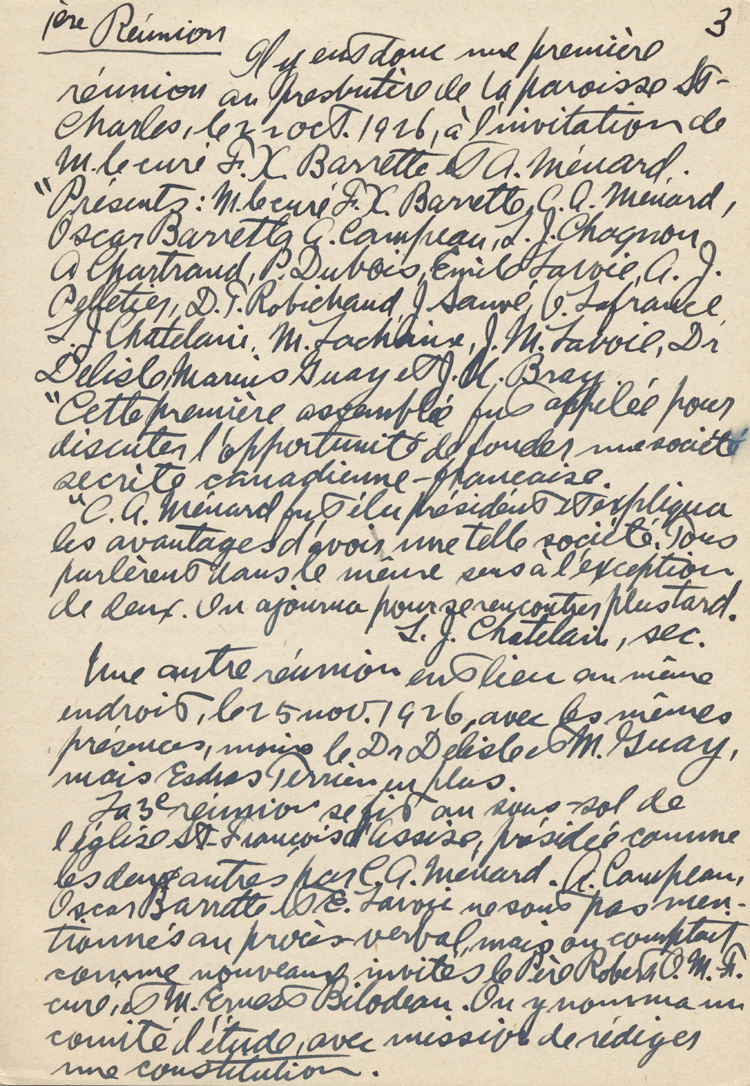 1ère Réunion
3
Il y eut donc une première
réunion au presbytère de la paroisse St-
Charles, le 22 oct. 1926, à l'invitation de
M. le curé F. X. Barrette et A. Ménard.
"Présents: M. le curé F. X. Barrette, C. A. Ménard,
Oscar Barrette, A. Campeau, L. J. Chagnon,
A Chartrand, P. Dubois, Émile Lavoie, A. J.
Pelletier, D. T. Robichaud, J Sauvé, O. Lafrance,
L. J Chatelain, M. Lachaine, J. M. Lavoie, Dr
Delisle, Marius Guay et J. U. Bray.
"Cette première assemblée fut appelée pour
discuter l'opportunité de fonder une société
secrète canadienne-française.
"C. A. Ménard fut élu président et expliqua
les avantages d'avoir une telle société. Tous
parlèrent dans le même sens à l'exception
de deux. On ajourna pour se rencontrer plus tard.
L. J. Chatelain, sec.
Une autre réunion eut lieu au même
endroit, le 25 nov. 1926, avec les mêmes
présences, moins le Dr Delisle et M. Guay,
mais Esdras Terrien en plus.
La 3e réunion se fit au sous-sol de
l'église St-François d'Assise, présidée comme
les deux autres par C. A. Ménard. A. Campeau,
Oscar Barrette et E. Lavoie ne sont pas men-
tionnés au procès-verbal, mais on comptait
comme nouveaux invités le Père Robert O. M. F.
curé, et M. Ernest Bilodeau. On y nomma un
comité d'étude, avec mission de rédiger
une constitution.